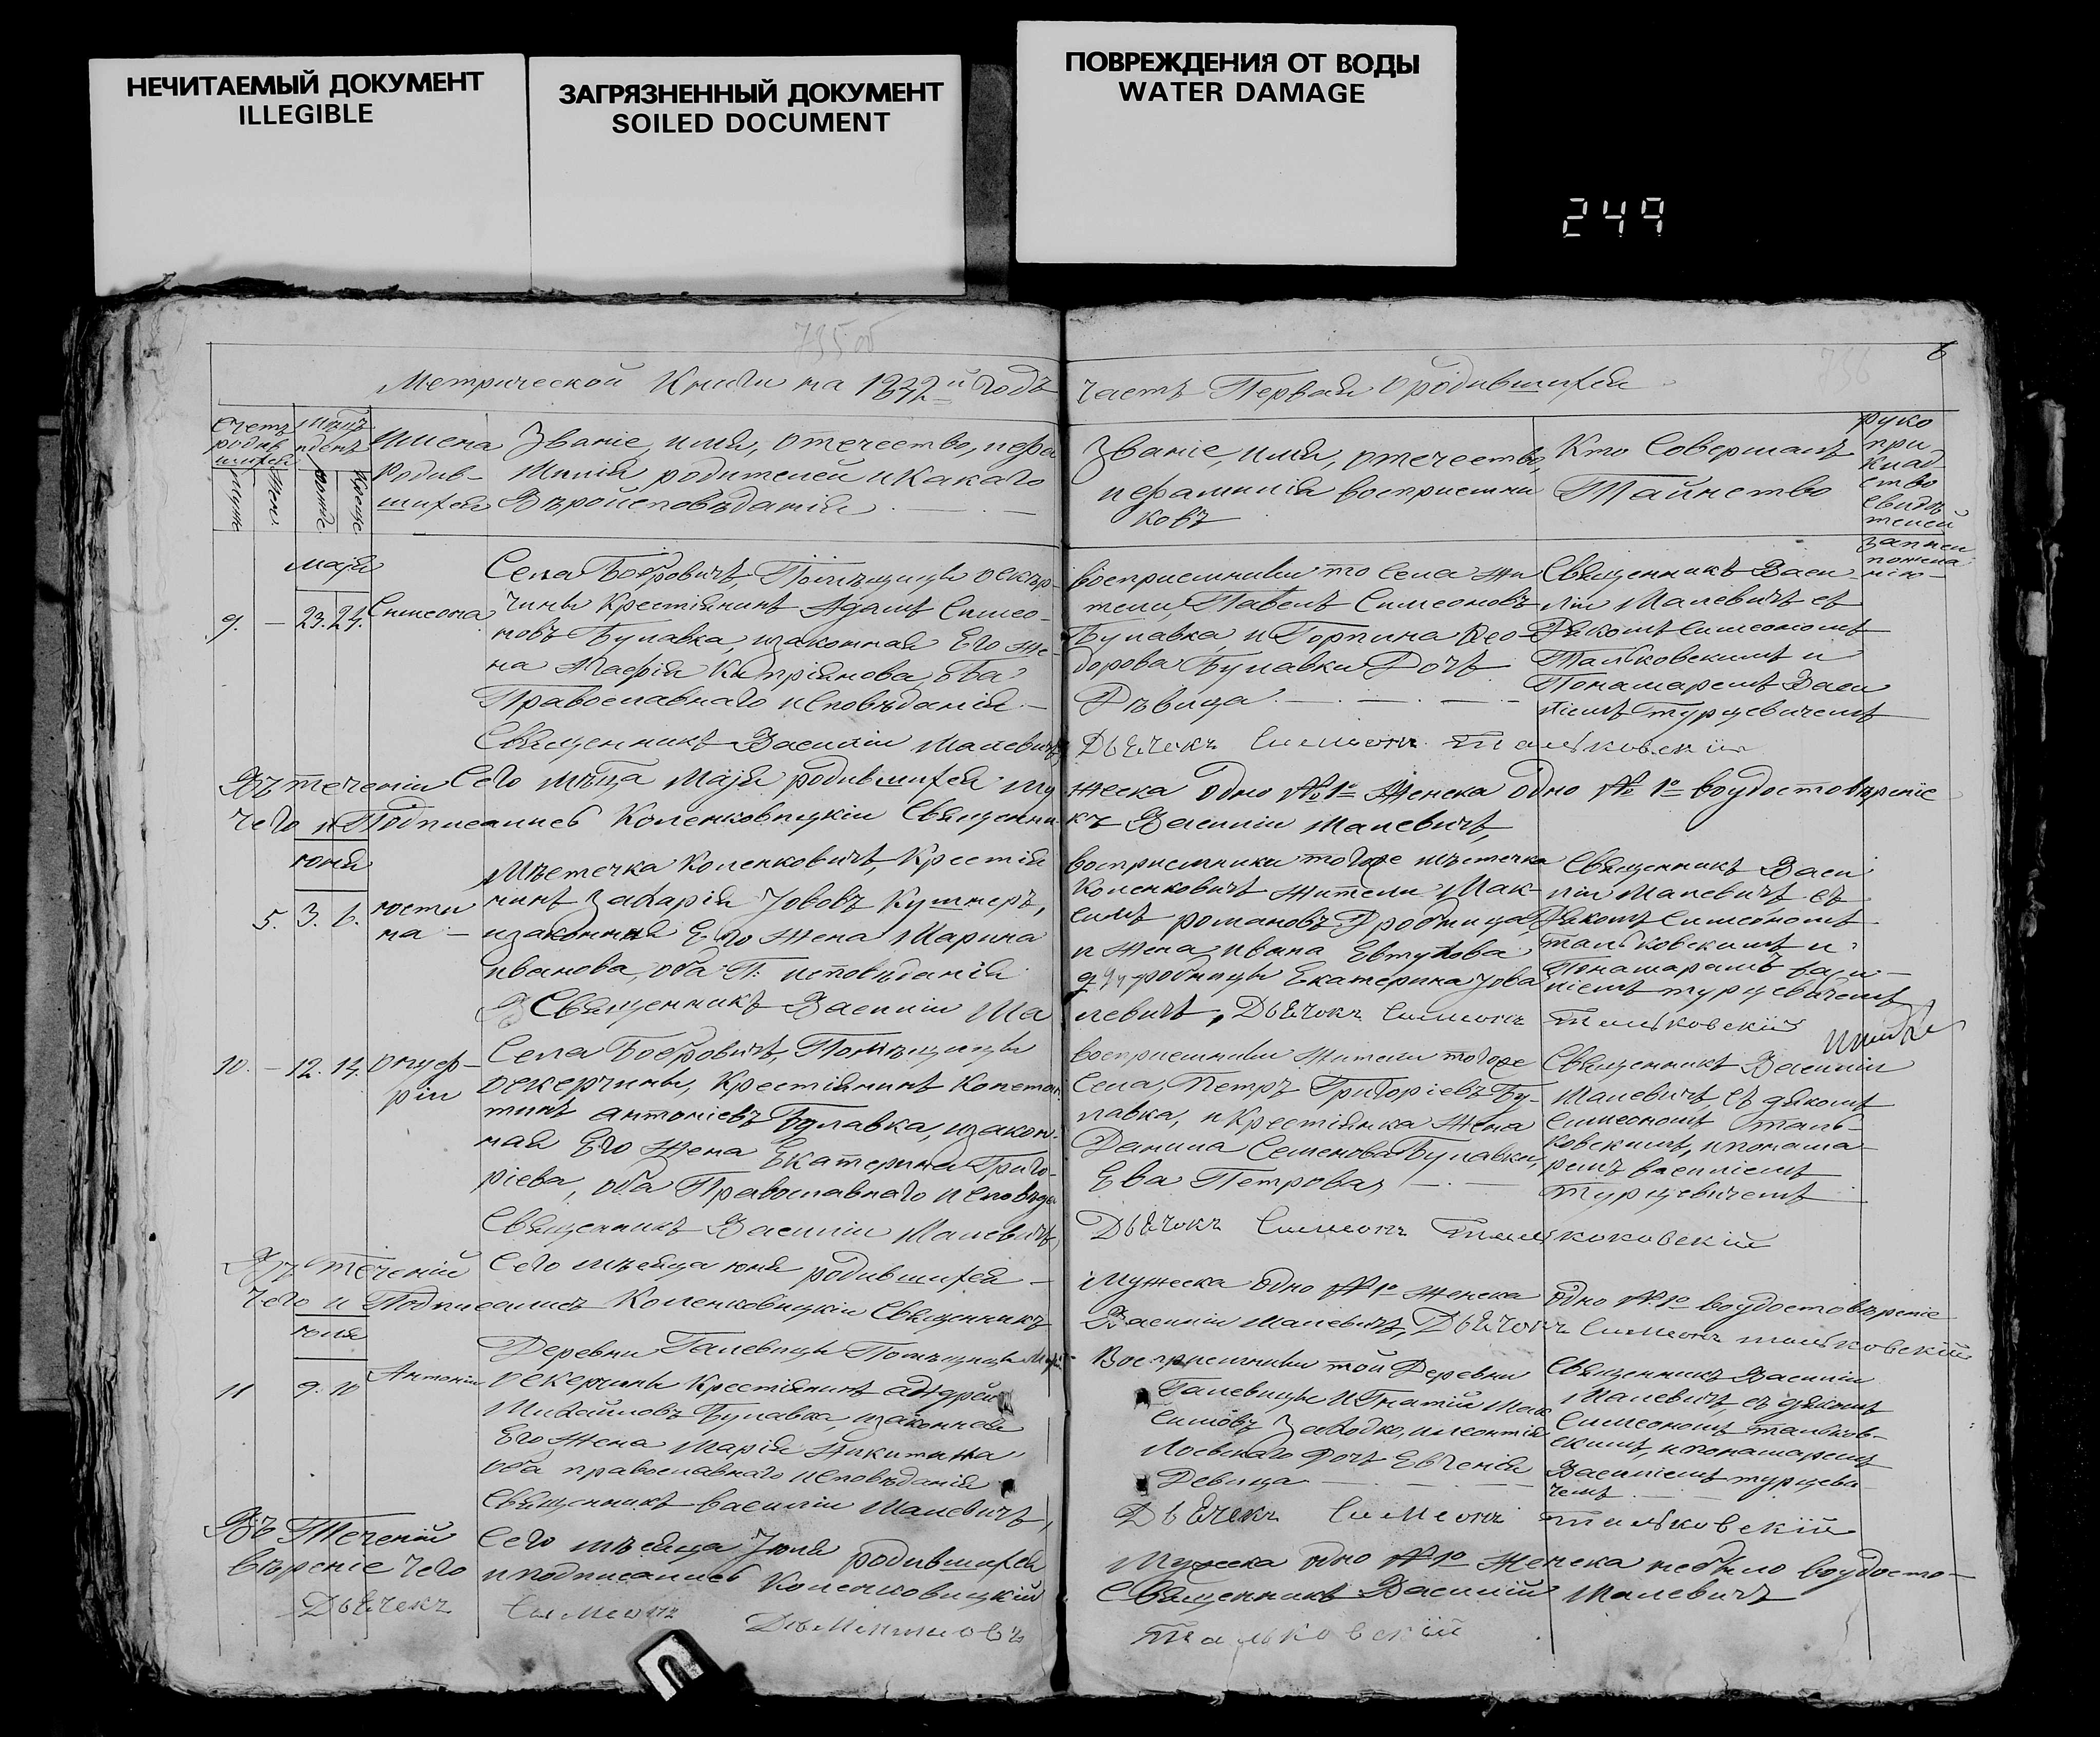 НЕЧИТАЕМЫЙ ДОКУМЕНТ
ILLEGIBLE
ЗАГРЯЗНЕННЫЙ ДОКУМЕНТ
SOILED DOCUMENT
ПОВРЕЖДЕНИЯ ОТ ВОДЫ
WATER DAMAGE
249
795 об
796
6
Метрической Книги на 1842й Годъ
часть Первая о родившихся
Счетъ родив шихся
Муж.
Жен.
Мѣцъ
Рожде.
Креще
Имена Родив-шихся
Званіе, имя, отечество, ифа
милія родителей и Какаго
Вѣроисповѣданія
Званіе, имя, отечество,
ифамилія восприемни
ковъ
Кто Совершалъ
Таинство
Руко
при
клад
ство
Свидѣ
телей
запи
Маія
9. — 23. 24. Симеона
Села Бобровичъ, Помѣщицы оскер-
чины Крестіянинъ Адамъ Симео-
новъ Булавка, изаконная Его Же-
на Агафія Кипріянова, оба
Православнаго исповѣданія
Священникъ Василіи Малевичъ,
восприемники то Села жи
тели, Павелъ Симеоновъ
Булавка, и Горпина Фео-
дорова Булавки Дочь
Дѣвица
Священникъ Васи
ліи Малевичъ съ
Дякомъ Симеономъ
Тальковскимъ и
Понамаремъ Васи
ліемъ Турцевичемъ
Дьячокъ Симеонъ Тальковскій
Въ теченіи Сего мѣца Маія родившихся му
жеска одно № 1о Женска одно № 1о воудостовѣреніе
чего и Подписались Коленковицкіи Священни
къ Василіи Малевичъ,
юня
5. 3. 6. юсти на
Мѣстечка Коленковичъ, Крестія
нинъ Захарія Іововъ Кушнеръ,
изаконная Его Жена Марина
иванова, оба П. исповѣданія
Священникъ Василіи Ма
восприемники тогоже мѣстечка
Коленковичъ жители Мак-
симъ романовъ Дробница,
и Жена ивана Евтухова
Дробницы Екатерина Іова
Священникъ Васи
ліи Малевичъ съ
Дякомъ Симеономъ
тальковскимъ и
Понамаремъ васи
ліемъ турцевичемъ
левичъ, Дьячокъ Симеонъ Тальковскій
10. — 12. 14. Онуф-рія
Села Бобровичъ, Помѣщицы
оскерчины, Крестіянинъ Констан
тинъ антоніевъ Булавка, изакон-
ная Его Жена Екатерина Григо-
ріева, оба Православнаго исповѣда
Священникъ Василіи Малевичъ
восприемники жители тогоже
Села, Петръ Григоріевъ Бу-
лавка, и Крестіянка Жена
Данила Семенова Булавки,
Ева Петрова,
Священникъ Василіи
Малевичъ, съ дякомъ
Симеономъ Таль-
ковскимъ, ипонама-
ремъ василіемъ
турцевичемъ
Дьячокъ Симеонъ
Въ теченіи Сего мѣсяца юня родившихся
Мужеска одно № 1о женска одно № 1о воудостовѣреніе
Чего и Подписались Коленковицкіи Священникъ
Василіи Малевичъ, Дьячокъ Симеонъ тальковскій
юля
11 9. 10 Антоніи
Деревни Галевицы Помѣщицы
оскерчины Крестіянинъ андрей
Михайловъ Булавка, изаконная
Его Жена Марія Никитина
оба православнаго исповѣданія
Священникъ василіи Малевичъ,
Восприемники той Деревни
Галевицы Игнатіи Мак
симовъ Заходко, илеонтія
Лоевскаго дочь Евгенія
Девица
Священникъ Василіи
Малевичъ съ дякомъ
Симеономъ тальков-
скимъ, ипонамаремъ
Василіемъ турцеви
чемъ
Дьячекъ Симеонъ тальковскій
Въ Теченіи Сего мѣсяца Іюля родившихся
Мужеска одно № 1о Женска небыло воудосто-
вѣреніе Чего иподписались Коленковицкій
Священникъ Василіи Малевичъ
Дьячекъ Симеонъ
тальковскій